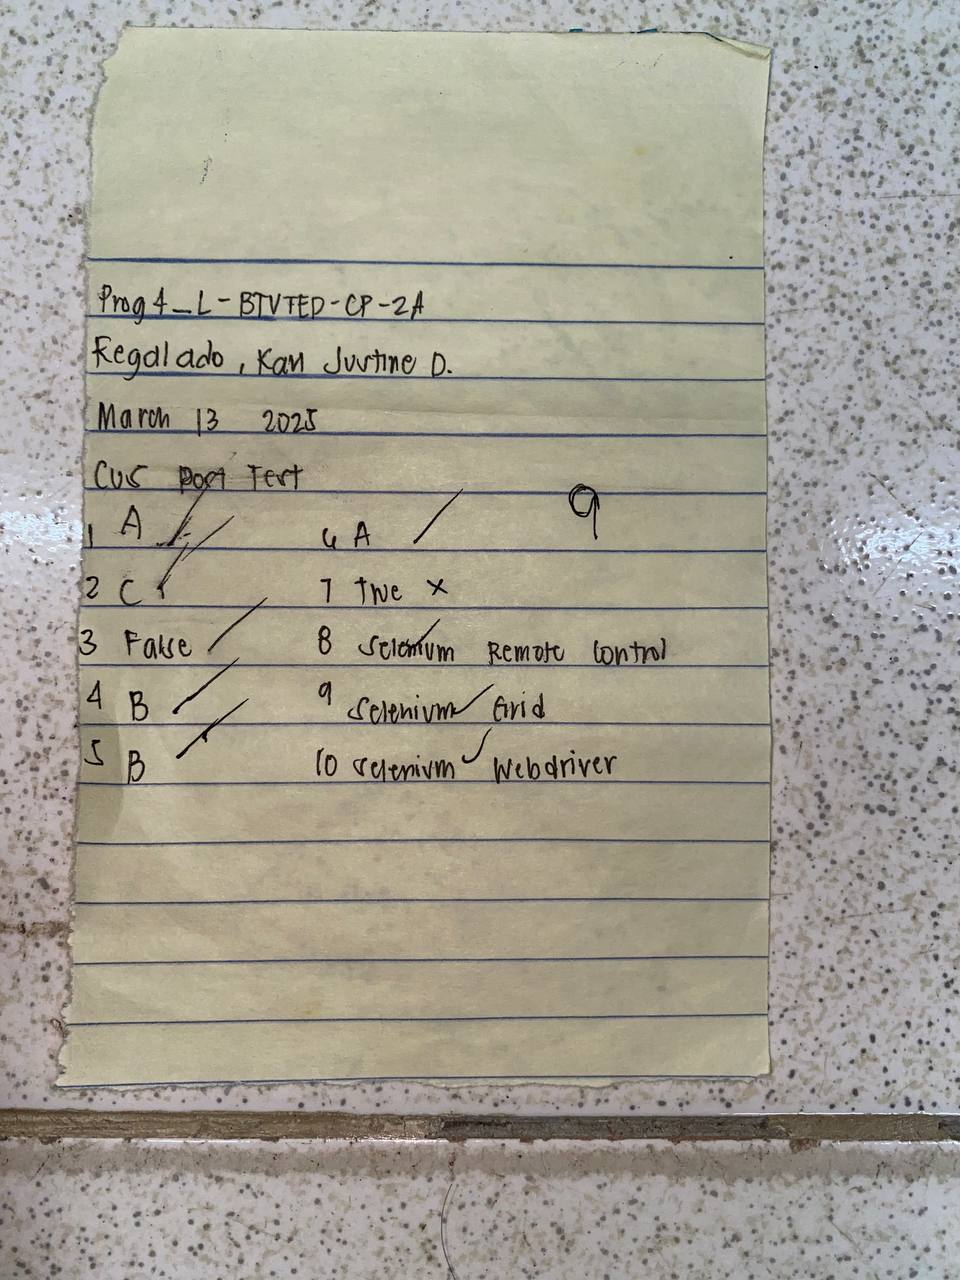 Prog 4_L - BTVTED - CP - 2A
Regalado, Kan Justine D.
March 13 2025
CU5 Post Test
1 A
2 C
3 False
4 B
5 B
6 A
7 True X
8 Selenium Remote Control
9 Selenium Grid
10 Selenium Webdriver
9